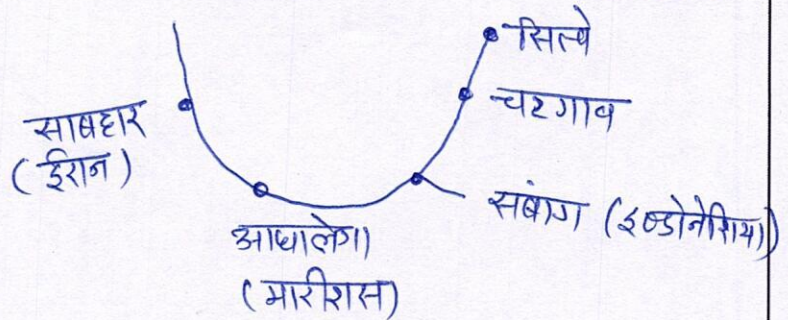 सित्वे
चटगाव
साबहार
(ईरान)
सबांग (इण्डोनेशिया)
आघालेगा
(मारीशस)